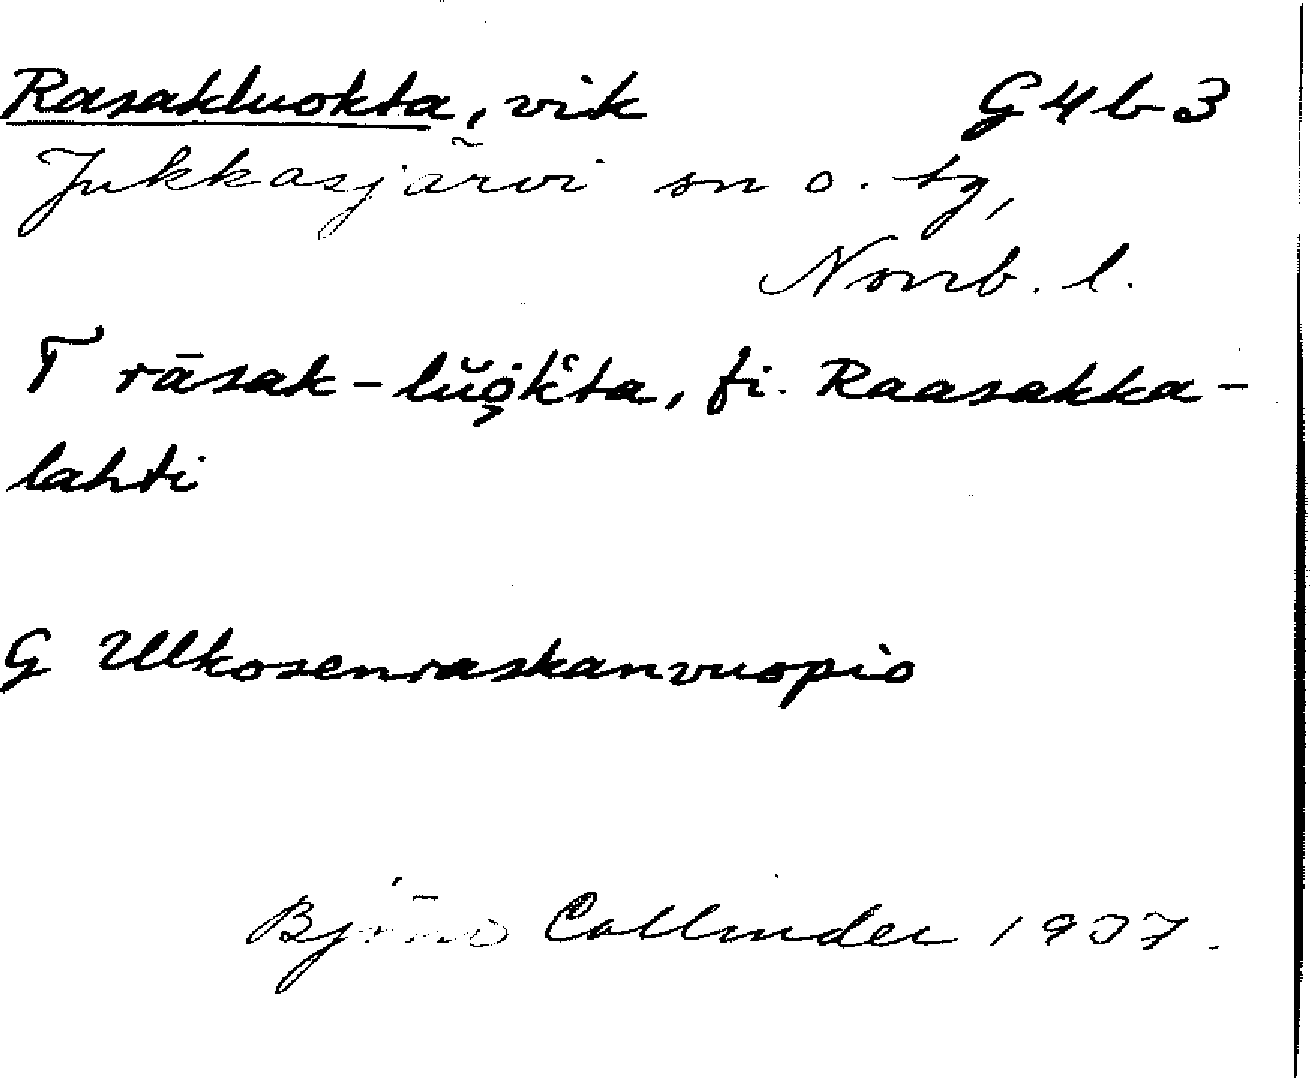 Rasakluokta, vik G4b3
Jukkasjärvi sn o. tg,
Norrb. l.
T rāsak-lŭo̯k'ta, fi. Raasakka-
lahti
G Ulkosenraskanvuopio
Björn Collinder 1937.